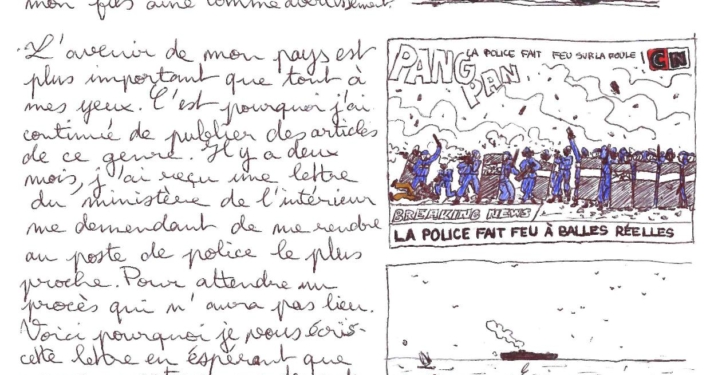 mon fils aîné comme avertissement.
L'avenir de mon pays est
plus important que tout à
mes yeux. C'est pourquoi j'ai
continué de publier des articles
de ce genre. Il y a deux
mois, j'ai reçu une lettre
du ministère de l'intérieur
me demendant de me rendre
au poste de police le plus
proche. Pour attendre un
procès qui n'aura pas lieu.
Voici pourquoi je vous écris
cette lettre en espérant que
PANG
PAN
LA POLICE FAIT FEU SUR LA FOULE
CN
BREAKING NEWS
LA POLICE FAIT FEU À BALLES RÉELLES